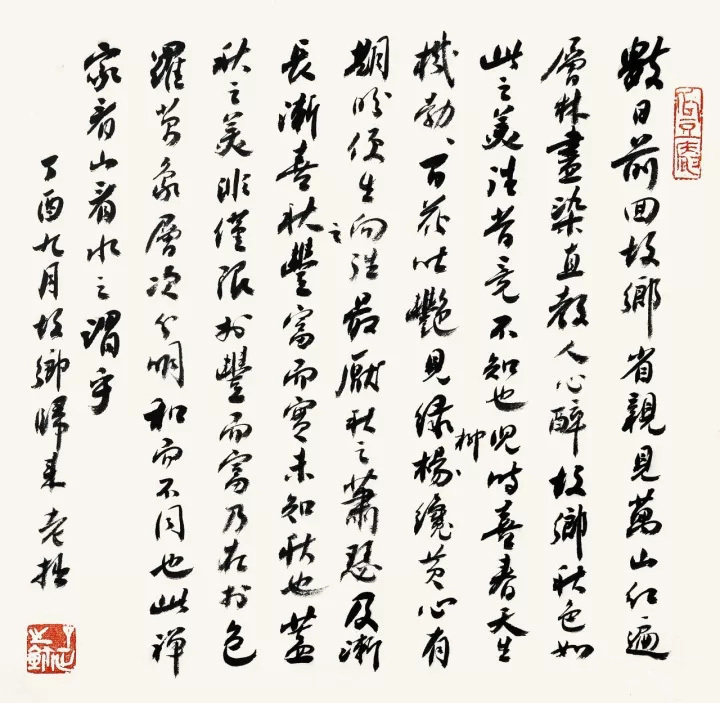 數日前回故鄉省親見萬山紅遍
層林盡染直教人心醉故鄉秋色如
此之美往昔竟不知也兒時喜春天生
機勃、百花吐艷見綠楊柳纔黃心有
期盼便生之向往最厭秋之蕭瑟及漸
長漸喜秋豐富而實未知秋也蓋
秋之美非僅限於豐而富乃在於色
羅萬象層次分明和而不同也此禪
家看山看水之謂乎
丁酉九月故鄉歸來老拙